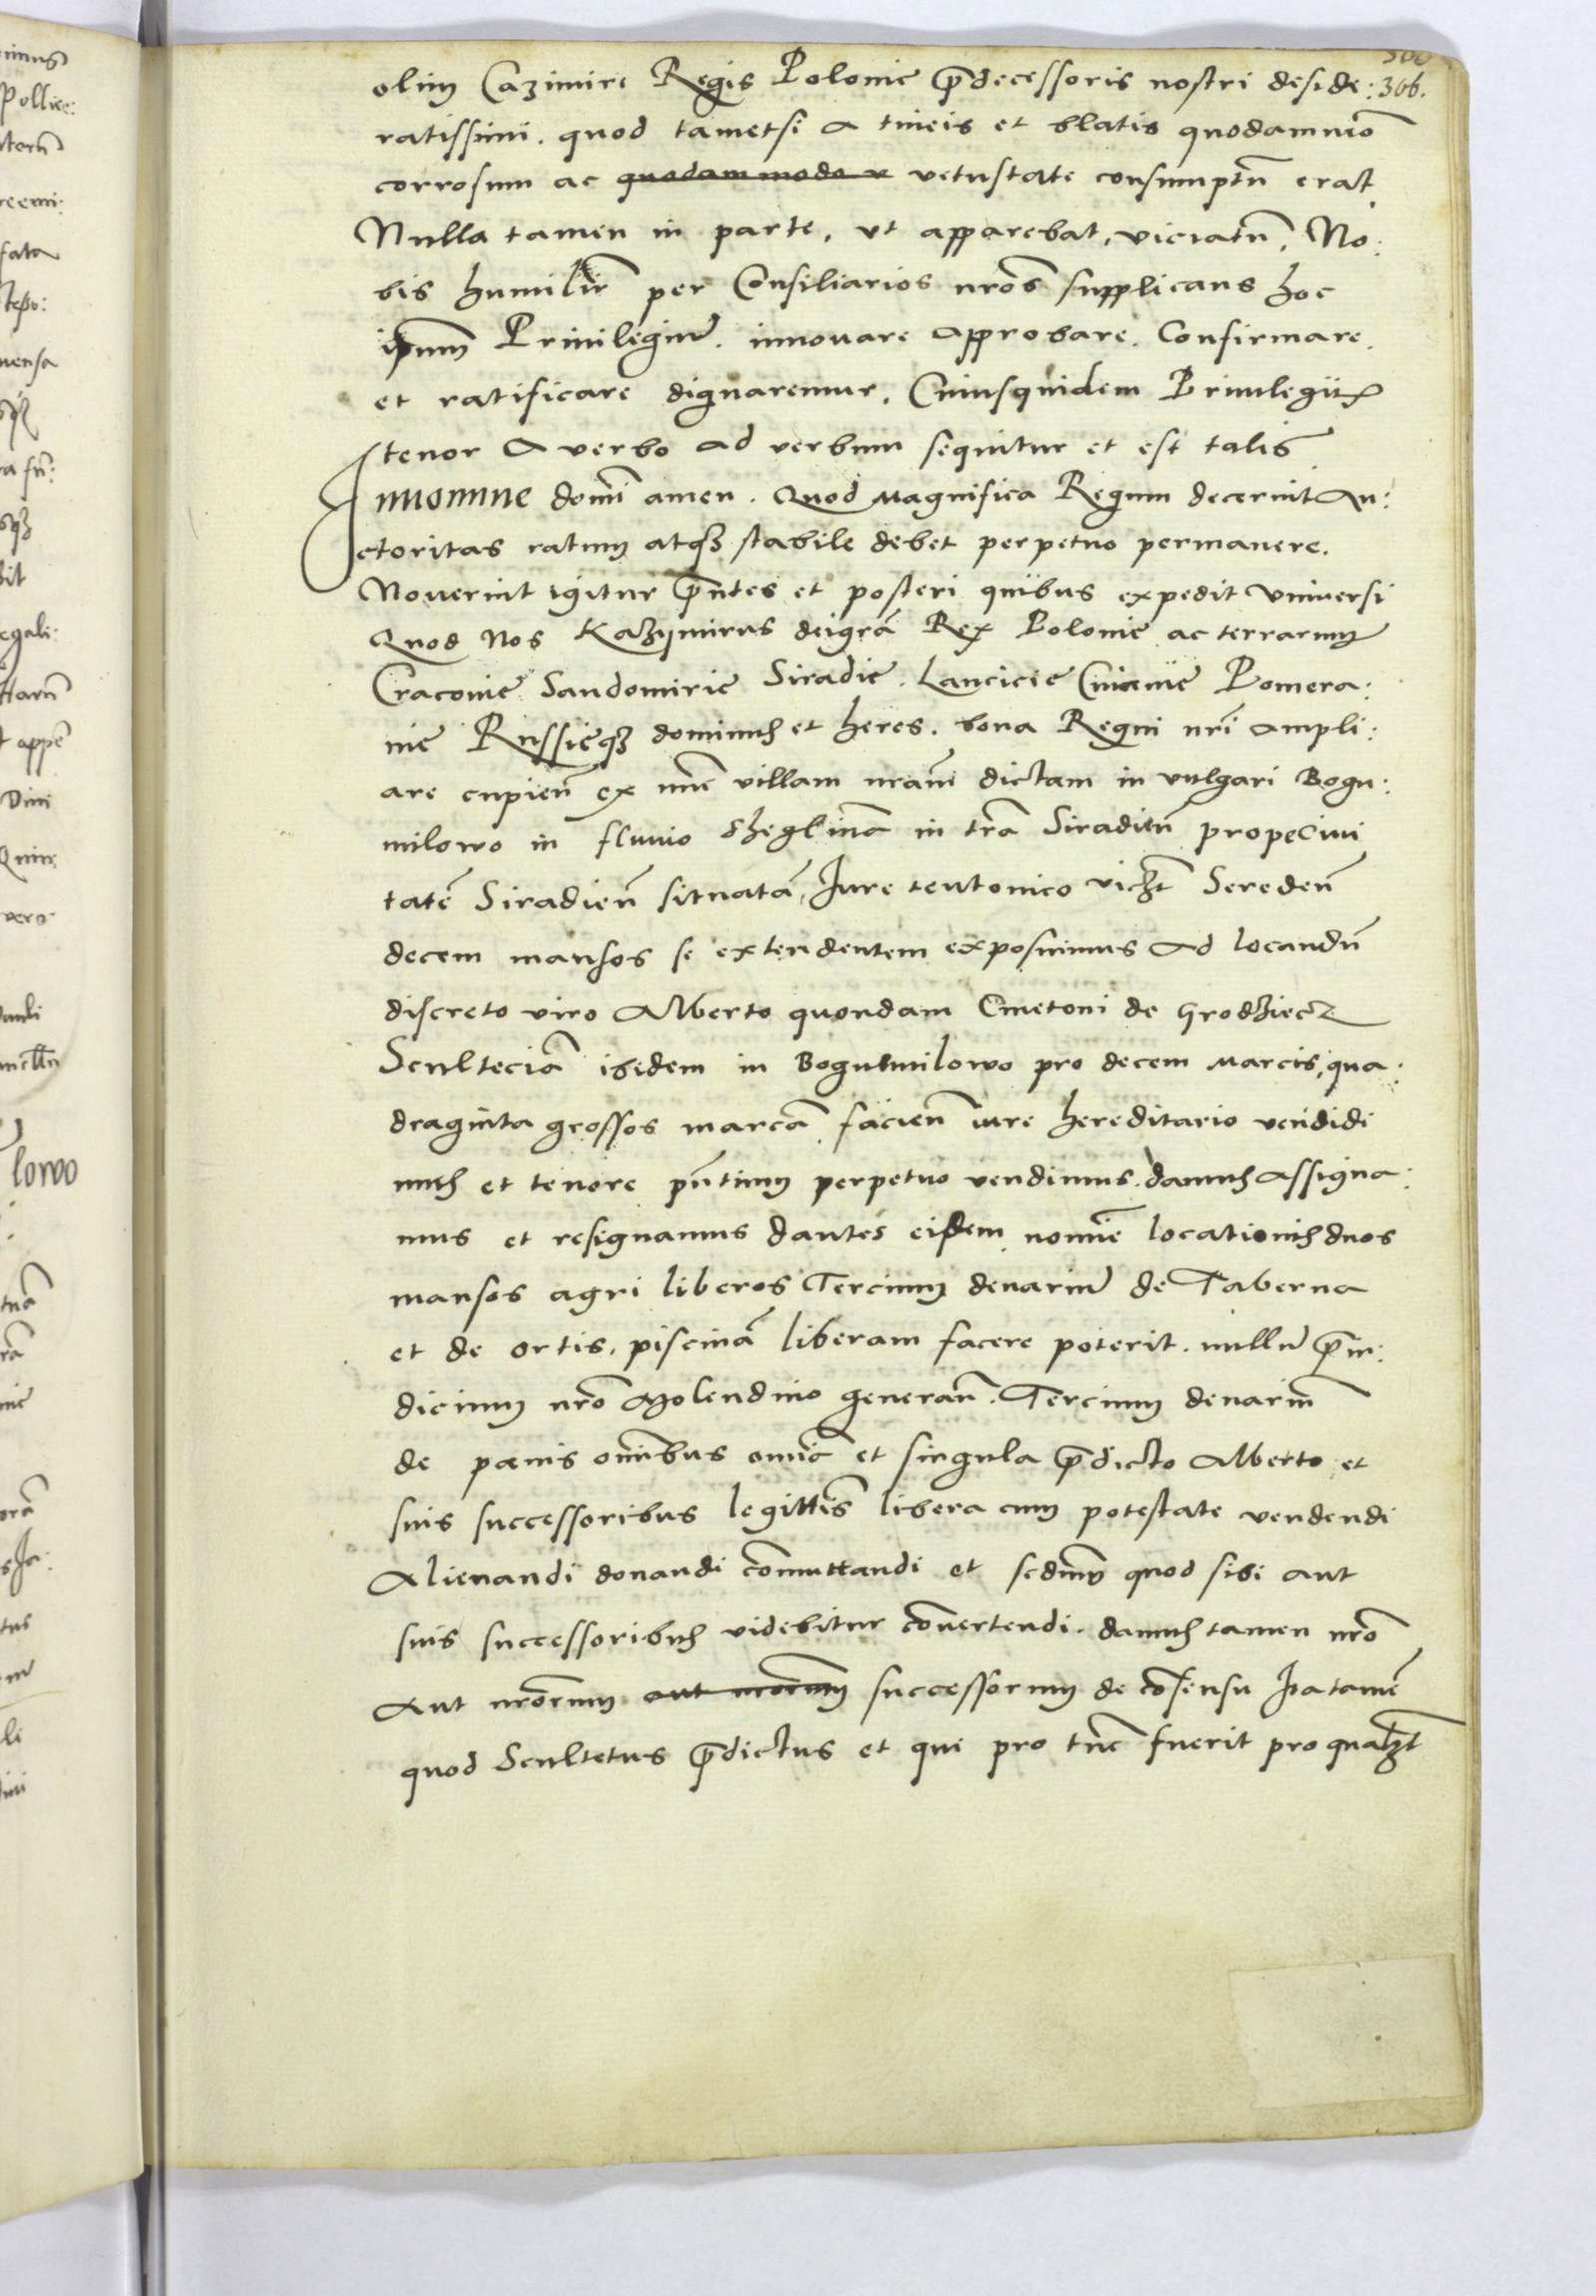 306.
olim Cazimiri Regis Polonie p̄decessoris nostri deside:
ratissimi. quod tametsi a tineis et blatis quodammo͞
corrosum ac quodammodo v vetustate consumptu͞ erat
Nulla tamen in parte, ut apparebat, viciatu͞, No:
bis humilit͞r per Consiliarios nr͞os supplicans hoc
ip͞um Priuilegiu͞. innouare approbare. Confirmare.
et ratificare dignaremur, Cuiusquidem Priuilegii
tenor a verbo ad verbum sequitur et est talis
In nomine domi͞ amen. Quod magnifica Regum decernit Au:
ctoritas ratum atq3 stabile debet perpetuo permanere.
Nouerint igitur p̄ntes et posteri quibus expedit vniuersi
Quod Nos Kazymirus deigra͞ Rex Polonie ac terrarum
Cracouie Sandomirie Siradie. Lancicie Cuiauie Pomera:
nie Russieq3 dominus et heres. bona Regni nr͞i ampli:
are cupien͞ ex nu͞c villam nr͞am dictam in vulgari Bogu:
milowo in fluuio Szeglina in tr͞a Siradien͞ prope Ciui
tate͞ Siradien͞ situata͞, Iure teutonico vic͞zt Sereden͞
decem mansos se extendentem exposuimus ad locandu͞
discreto viro Alberto quondam Cmetoni de Grodziecz
Scultecia͞ ibidem in Bogumilowo pro decem marcis, qua:
draginta grossos marca͞ facien͞ iure hereditario vendidi
mus et tenore pn͞tium perpetuo vendimus. damus assigna:
mus et resignamus dantes eidem nomi͞e locationis duos
mansos agri liberos Tercium denariu͞ de Taberna
et de ortis, piscina͞ liberam facere poterit. nullu͞ p̄iu:
dicium nr͞o Molendino generan͞. Tercium denariu͞
de penis omi͞bus omi͞a et singula p̄dicto Alberto et
suis successoribus legittis͞ libera cum potestate vendendi
Alienandi donandi co͞muttandi et sedm͞ quod sibi aut
suis successoribus videbitur co͞uertendi. damus tamen nr͞o
aut nr͞orum aut nr͞orum successorum de co͞sensu Ita tame͞
quod Scultetus p̄dictus et qui pro tu͞c fuerit pro qual͞zt
lowo